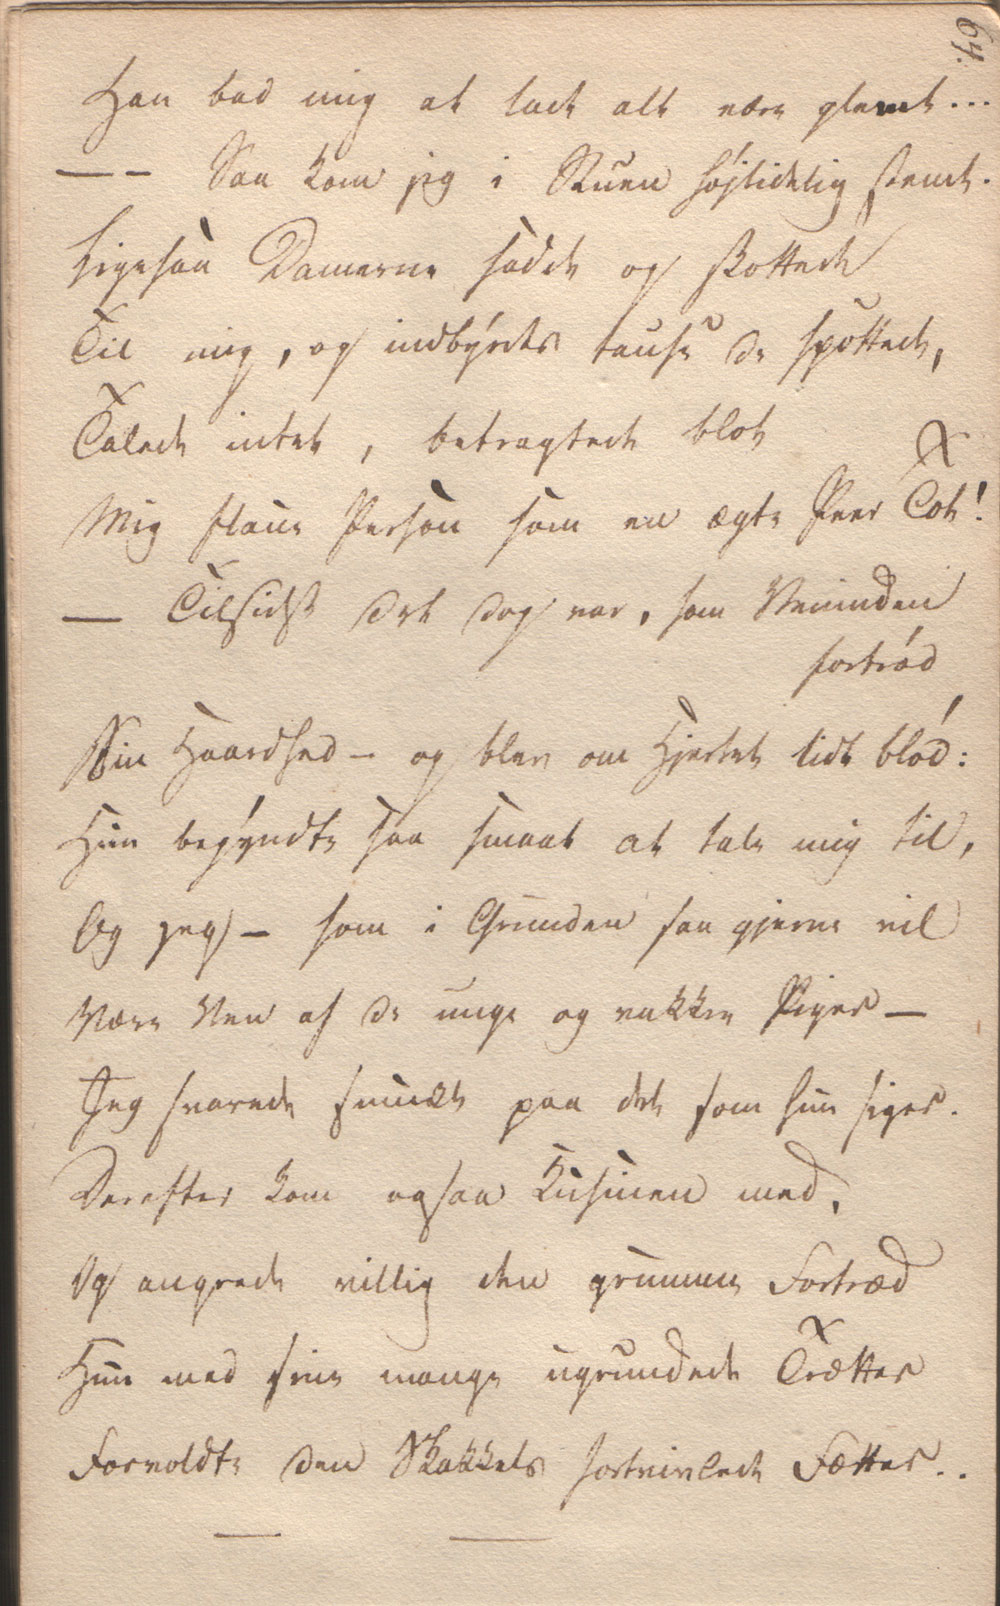 64.
Han bad mig at lade alt være glemt...
— – Saa kom jeg i Stuen højtidelig stemt.
Ligesaa Damerne sadde og skottede
Til mig, og indbyrdes tause de spottede,
Talede intet, betragtede blot
Mig flaue Person som en ægte Peer Tot!
— Tilsidst det dog var, som Veninden
fortrød
Sin Haardhed – og blev om Hjertet lidt blød:
Hun begyndte saa smaat at tale mig til,
Og jeg – som i Grunden saa gjerne vil
Være Ven af de unge og vakkre Piger –
Jeg svarede smukt paa det som hun siger.
Derefter kom ogsaa Kusinen med,
Og angrede villig den grumme Fortræd
Hun med sine mange ugrundede Trætter
Forvoldte den Stakkels fortvivlede Fætter..